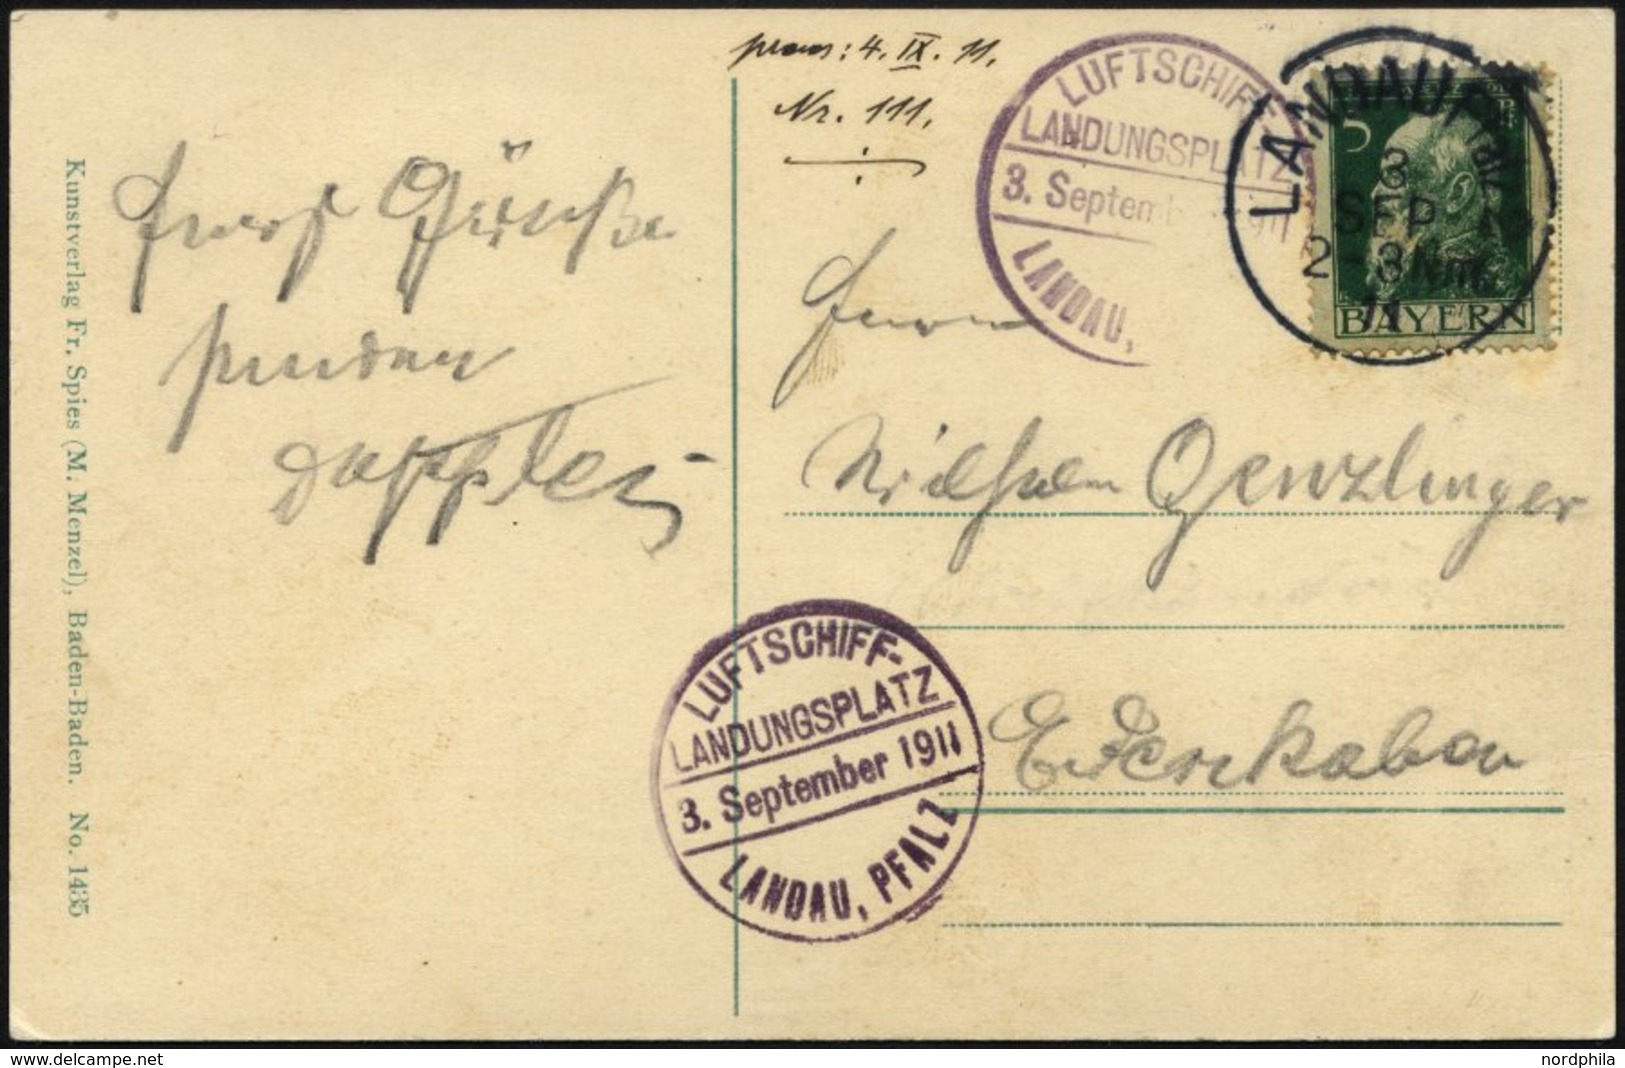 praes: 4. IX. 11.
Nr. 111.
LUFTSCHIFF-
LANDUNGSPLATZ
3. Septemb 1911
LANDAU,
LANDAU Pfalz
3
SEP
2-3 Nm.
11
5
BAYERN
Grüße
senden
Herrn
Wilhelm Genzlinger
Edenkoben
LUFTSCHIFF-
LANDUNGSPLATZ
3. September 1911
LANDAU, PFALZ
Kunstverlag Fr. Spies (M. Menzel), Baden-Baden. No. 1435
delcampe.net
nordphila